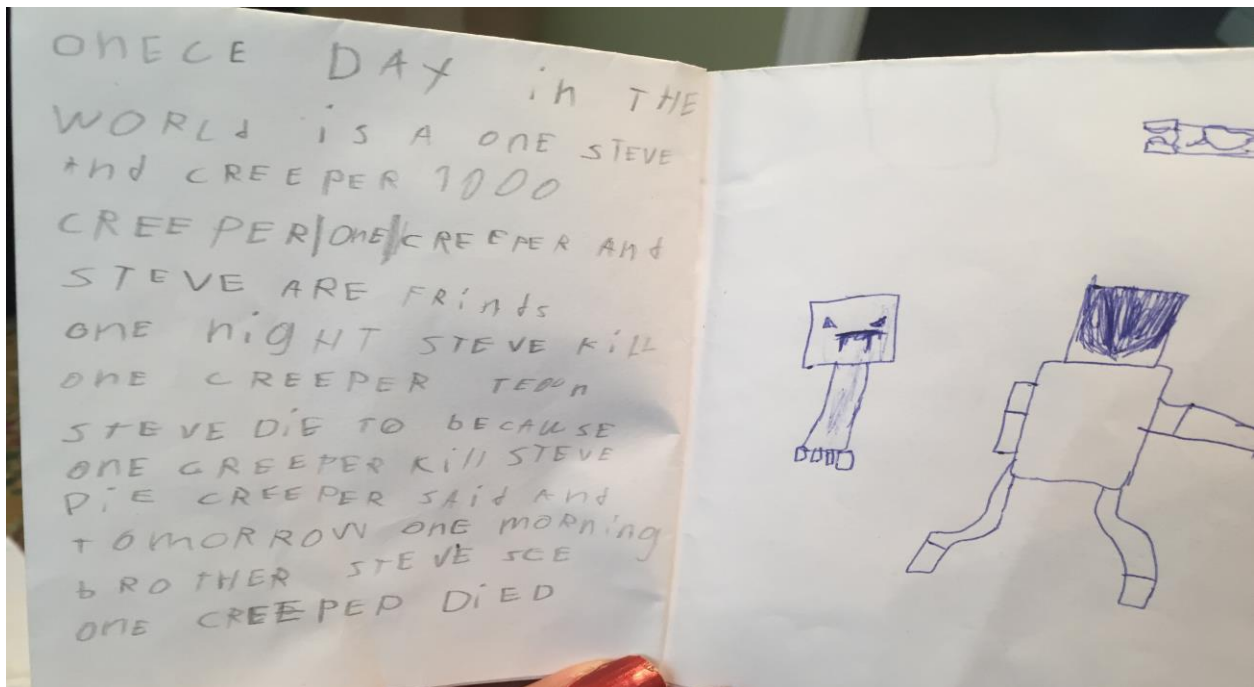 onECE DAY in THE
WORLd iS A onE STEVE
And CREEPER 1000
CREEPER|OnE|CREEPER And
STEVE ARE FRindS
onE nigHT STEVE KiLL
onE CREEPER
STEVE DiE TO bECAUSE
onE CREEPER Kill STEVE
DiE CREEPER SAid And
TOmORROW onE mORning
bROTHER STEVE SEE
onE CREEPED DiED